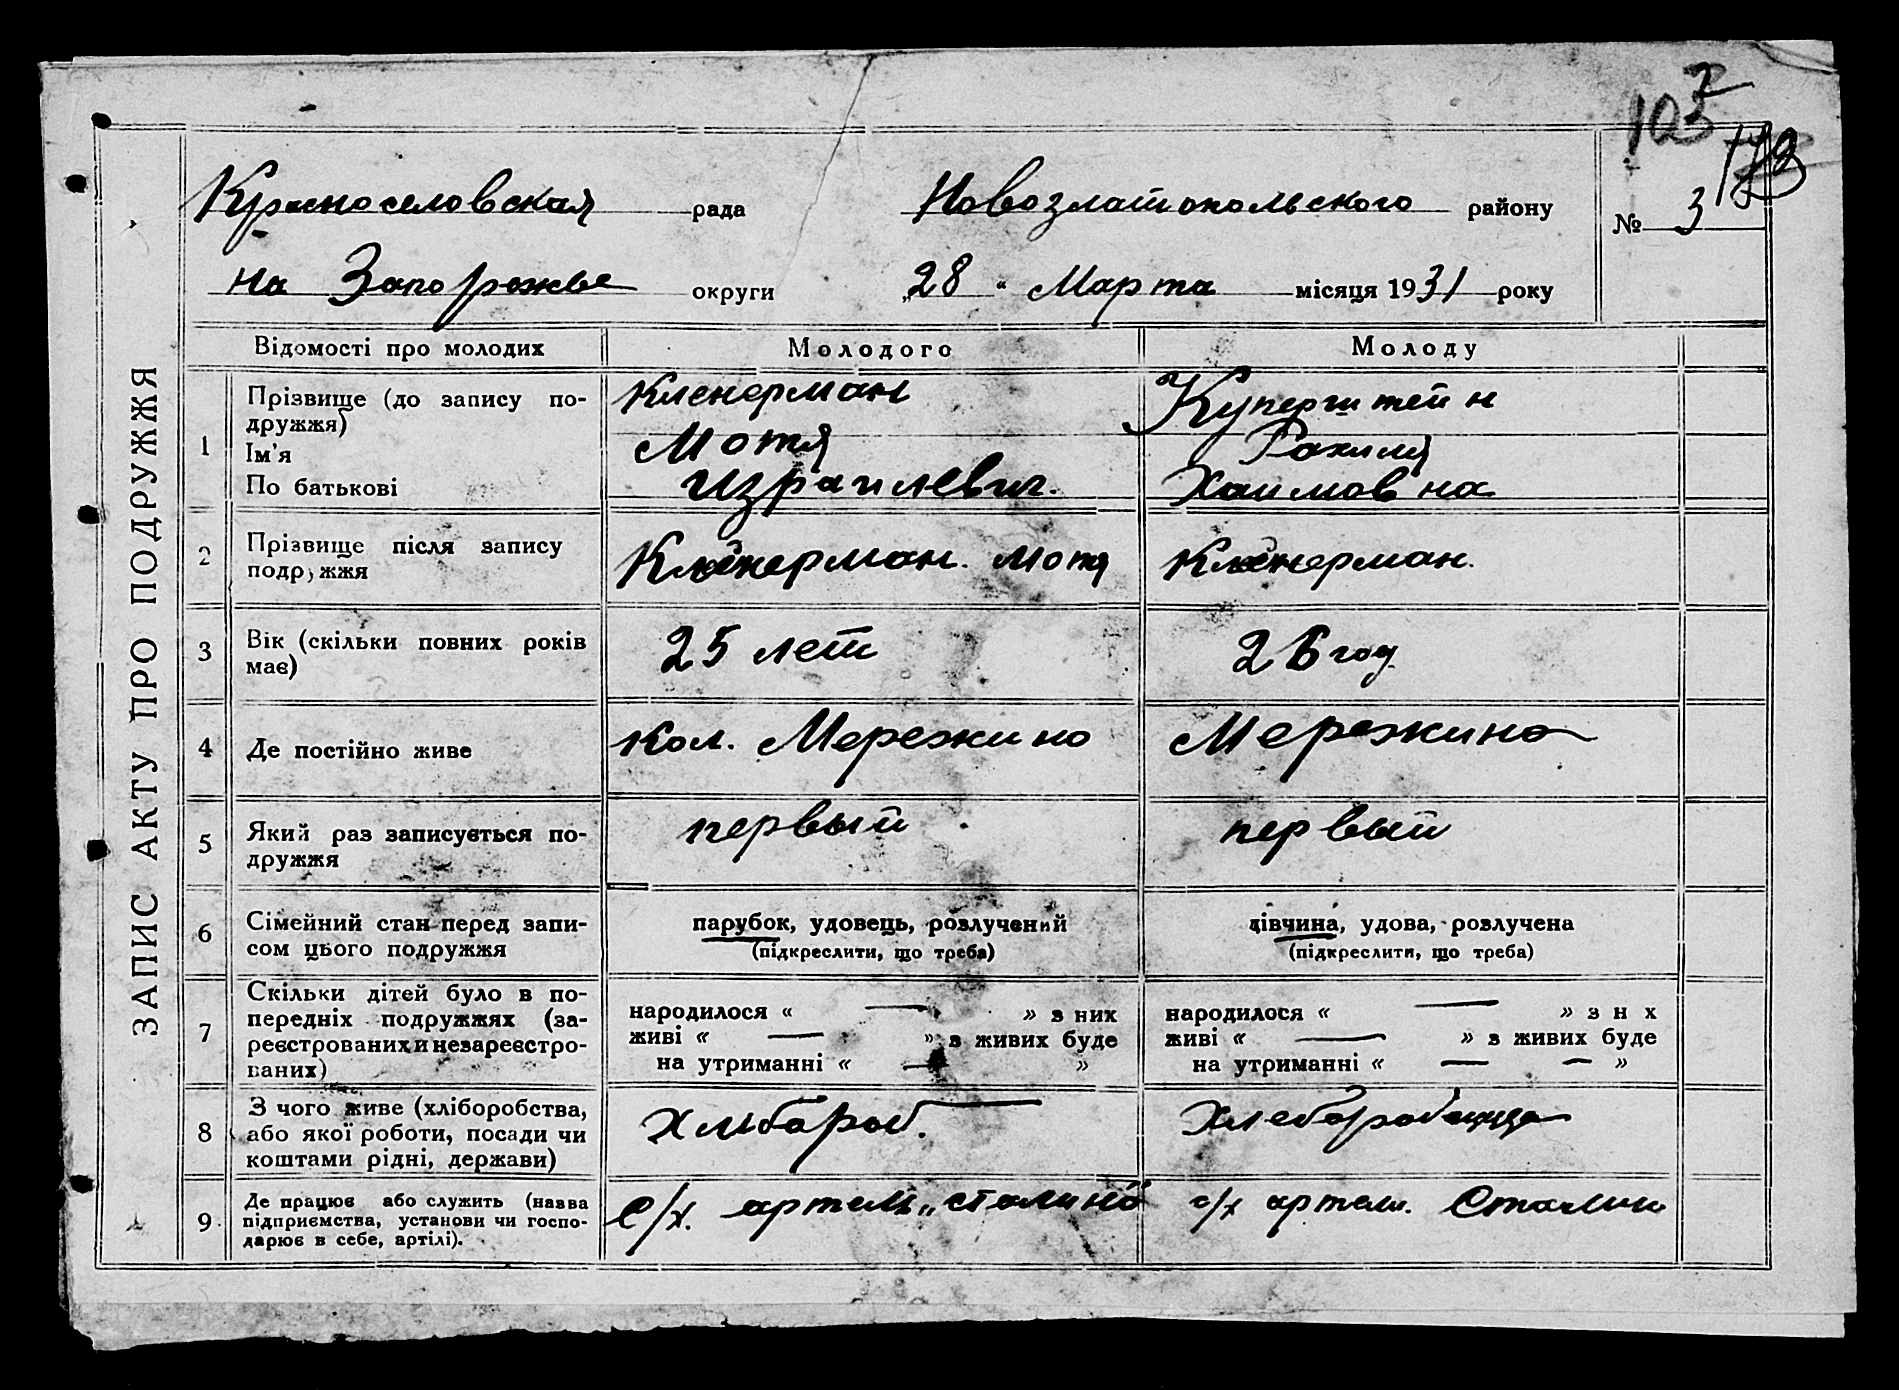 103 2
173
Красноселовская рада Новозлатопольского району № 3
на Запорожье округи „28“ Марта місяця 1931 року
ЗАПИС АКТУ ПРО ПОДРУЖЖЯ
Відомості про молодих Молодого Молоду
1 Прізвище (до запису по-
дружжя) Кленерман Куперштейн
Ім'я Мотя Рахиля
По батькові Израилевич. Хаимовна
2 Прізвище після запису
подружжя Клейнерман. Мотя Клейнерман.
3 Вік (скільки повних років
має) 25 лет 26 год
4 Де постійно живе Кол. Мережино Мережино
5 Який раз записується по-
дружжя первый первый
6 Сімейний стан перед запи-
сом цього подружжя
парубок, удовець, розлучений
(підкреслити, що треба)
дівчина, удова, розлучена
(підкреслити, що треба)
7 Скільки дітей було в по-
передніх подружжях (за-
реєстрованих и незареєстро-
ваних)
народилося « — » з них
живі « — » з живих буде
на утриманні « — »
народилося « — » з н х
живі « — » з живих буде
на утриманні « — — »
8 З чого живе (хліборобства,
або якої роботи, посади чи
коштами рідні, держави)
Хлібороб. Хлеборобница
9 Де працює або служить (назва
підприємства, установи чи госпо-
дарює в себе, артілі).
с/х. артель „Сталина" с/х артель. Сталина